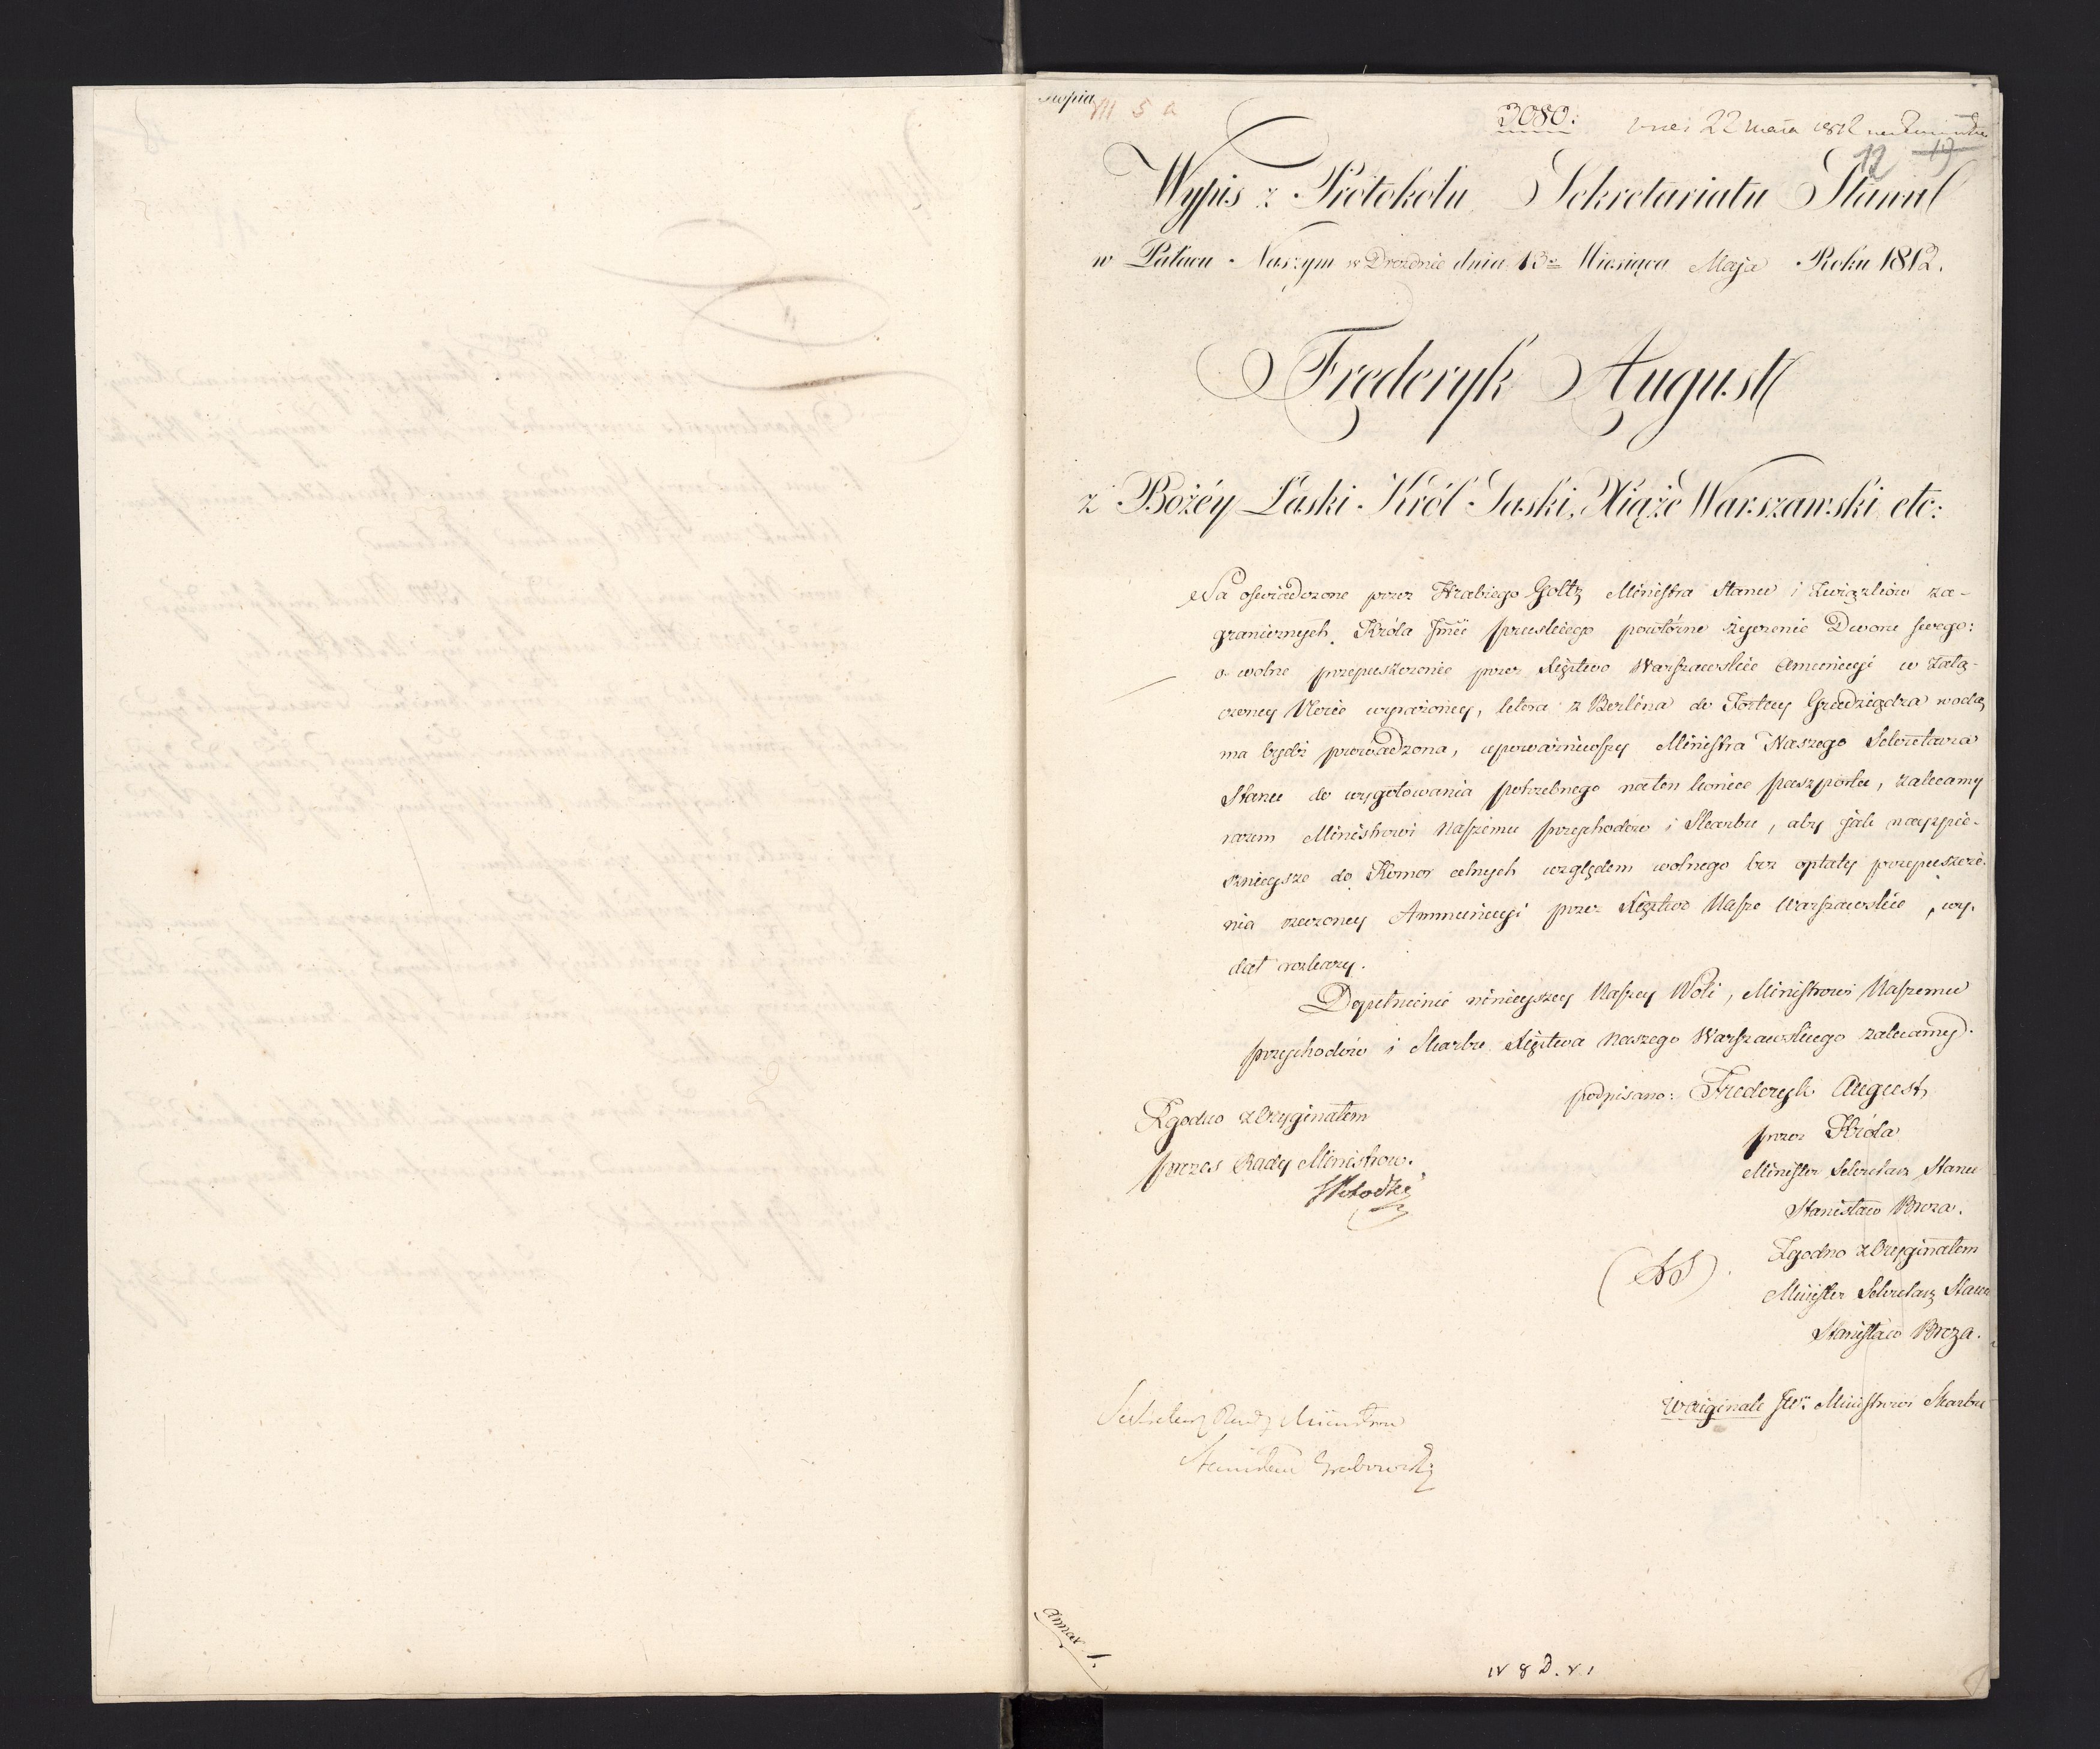 Kopia
VII 5 a
3080.
dnia 22 Maja 1812
12 19
Wypis z Protokołu Sekretariatu Stanu
w Pałacu Naszym w Dreźnie dnia 13º Miesiąca Maja Roku 1812.
Fryderyk August
z Bożéy Łaski Król Saski, Xiąże Warszawski etc:
Na oświadczone przez Hrabiego Goltz Ministra Stanu i Związków za-
granicznych Króla Jmći pruskiego powtórne życzenie Dworu swego:
o wolne przepuszczenie przez Xięztwo Warszawskie Amunicyi w załą-
czoney Nocie wyrażoney, która z Berlina do Fortecy Grudziądza wodą
ma bydź prowadzona, upoważniwszy Ministra Naszego Sekretarza
Stanu do wygotowania potrzebnego na ten koniec paszportu, zalecamy
razem Ministrowi Naszemu przychodów i Skarbu, aby jak nayspie-
sznieysze do Komor celnych względem wolnego bez opłaty przepuszcze-
nia rzeczoney Ammunicyi przez Xięztwo Nasze Warszawskie, wy-
dał rozkazy.
Dopełnienie ninieyszey Naszey Woli, Ministrowi Naszemu
przychodów i Skarbu Xięztwa Naszego Warszawskiego zalecamy.
podpisano: Fryderyk August,
przez Króla
Minister Sekretarz Stanu
Stanisław Breza.
Zgodno z Oryginałem
prezes Rady Ministrow.
(LS).
Zgodno z Oryginałem
Minister Sekretarz Stanu
Stanisław Breza.
W originale JW. Ministrowi Skarbu
Sekretarz Rady Ministrow
Stanisław Grabowski
annex 1.